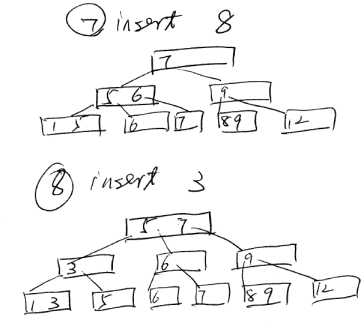 7 insert 8
7
5 6 9
1 5 6 7 8 9 12
8 insert 3
5 7
3 6 9
1 3 5 6 7 8 9 12